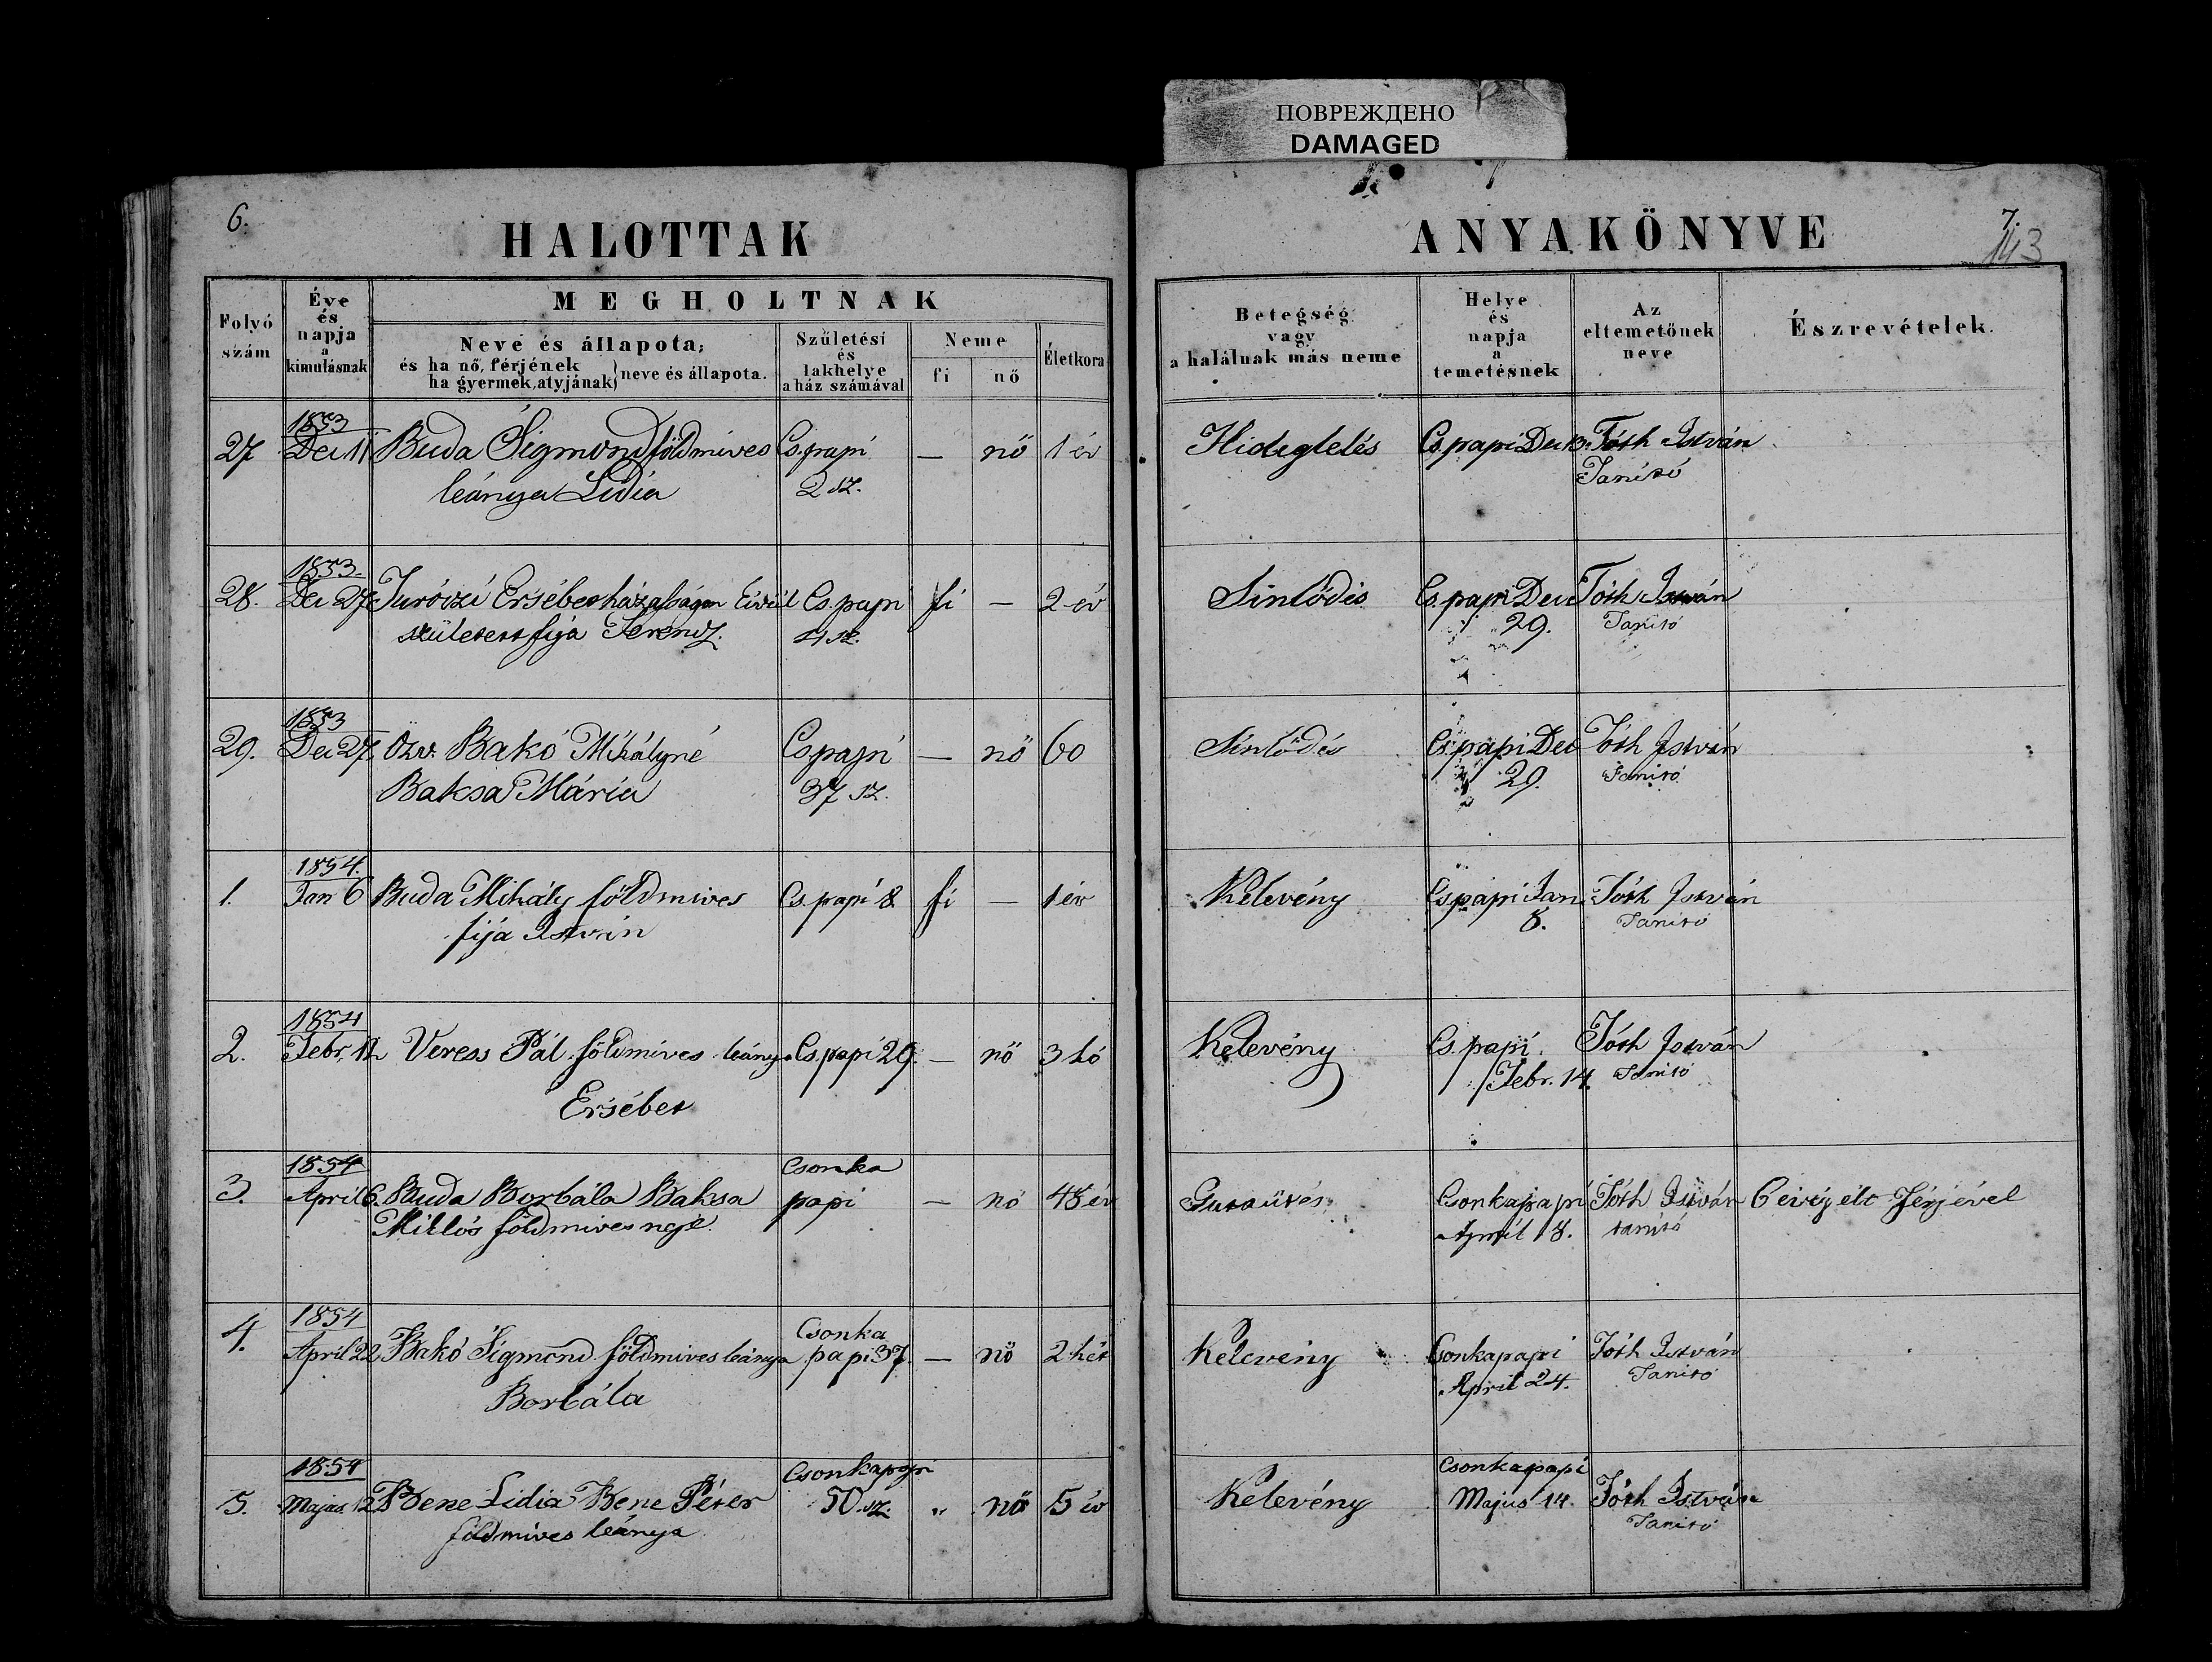 ПОВРЕЖДЕНО
DAMAGED
6.
HALOTTAK
ANYAKÖNYVE
7.
143
Folyó
szám
Éve
és
napja
a
kimulásnak
MEGHOLTNAK
Neve és állapota;
és ha nő, férjének
ha gyermek, atyjának} neve és állapota.
Születési
és
lakhelye
a ház számával
Neme
fi
nő
Életkora
Betegség
vagy
a halálnak más neme
Helye
és
napja
a
temetésnek
Az
eltemetőnek
neve
Észrevételek.
27
1853
Dec 11
Buda Sigmond földmives
leánya Lidia
Cs.papi
2 sz.
—
nő
1 év
Hideglelés
Cs.papi Dec 13.
Tóth István
Tanitó
28.
1853.
Dec 27
Turóczi Ersébet házasságon kivül
született fija Ferencz.
Cs.papi
4 sz.
fi
—
2 év
Sinlődés
Cs.papi Dec
29.
Tóth István
Tanitó
29.
1853
Dec 27.
Özv. Bakó Mihályné
Baksa Mária
Cs.papi
37 sz.
—
nő
60
Sinlődés
Cs.papi Dec
29.
Tóth István
Tanitó
1.
1854.
Jan 6
Buda Mihály földmives
fija István
Cs.papi 8
fi
—
1 év
Kelevény
Cs.papi Jan.
8.
Tóth István
Tanitó
2.
1854
Febr. 12
Veress Pál földmives leánya
Ersébet
Cs.papi 29.
—
nő
3 hó
Kelevény
Cs.papi
Febr. 14.
Tóth István
Tanitó
3.
1854
April 6.
Buda Borbála Baksa
Miklós földmives neje.
Csonka
papi
—
nő
48 év
Gutaütés
Csonkapapi
April 18.
Tóth István
tanitó
6 évig élt férjével
4.
1854
April 22
Bakó Sigmond földmives leánya
Borbála
Csonka
papi 37
—
nő
2 hét
Kelevény
Csonkapapi
April 24.
Tóth István
Tanitó
5.
1854
Majus 12
Bene Lidia Bene Péter
földmives leánya
Csonkapapi
50 sz.
"
nő
5 év
Kelevény
Csonkapapi
Majus 14.
Tóth István
Tanitó